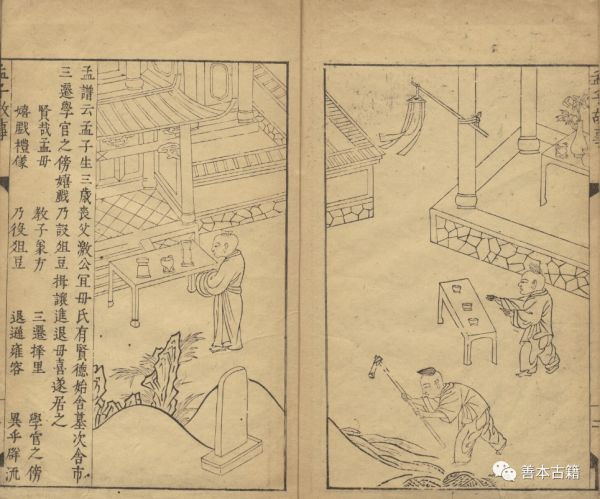 孟子故事
孟譜云孟子生三歲喪父激公宜母氏有賢德始舍墓次舍市
三遷學官之傍嬉戲乃設俎豆揖讓進退母喜遂居之
賢哉孟母 教子方 三遷擇里 學官之傍
嬉戲禮儀 乃俎豆 退遜雍容 異乎流
孟子故事
善本古籍